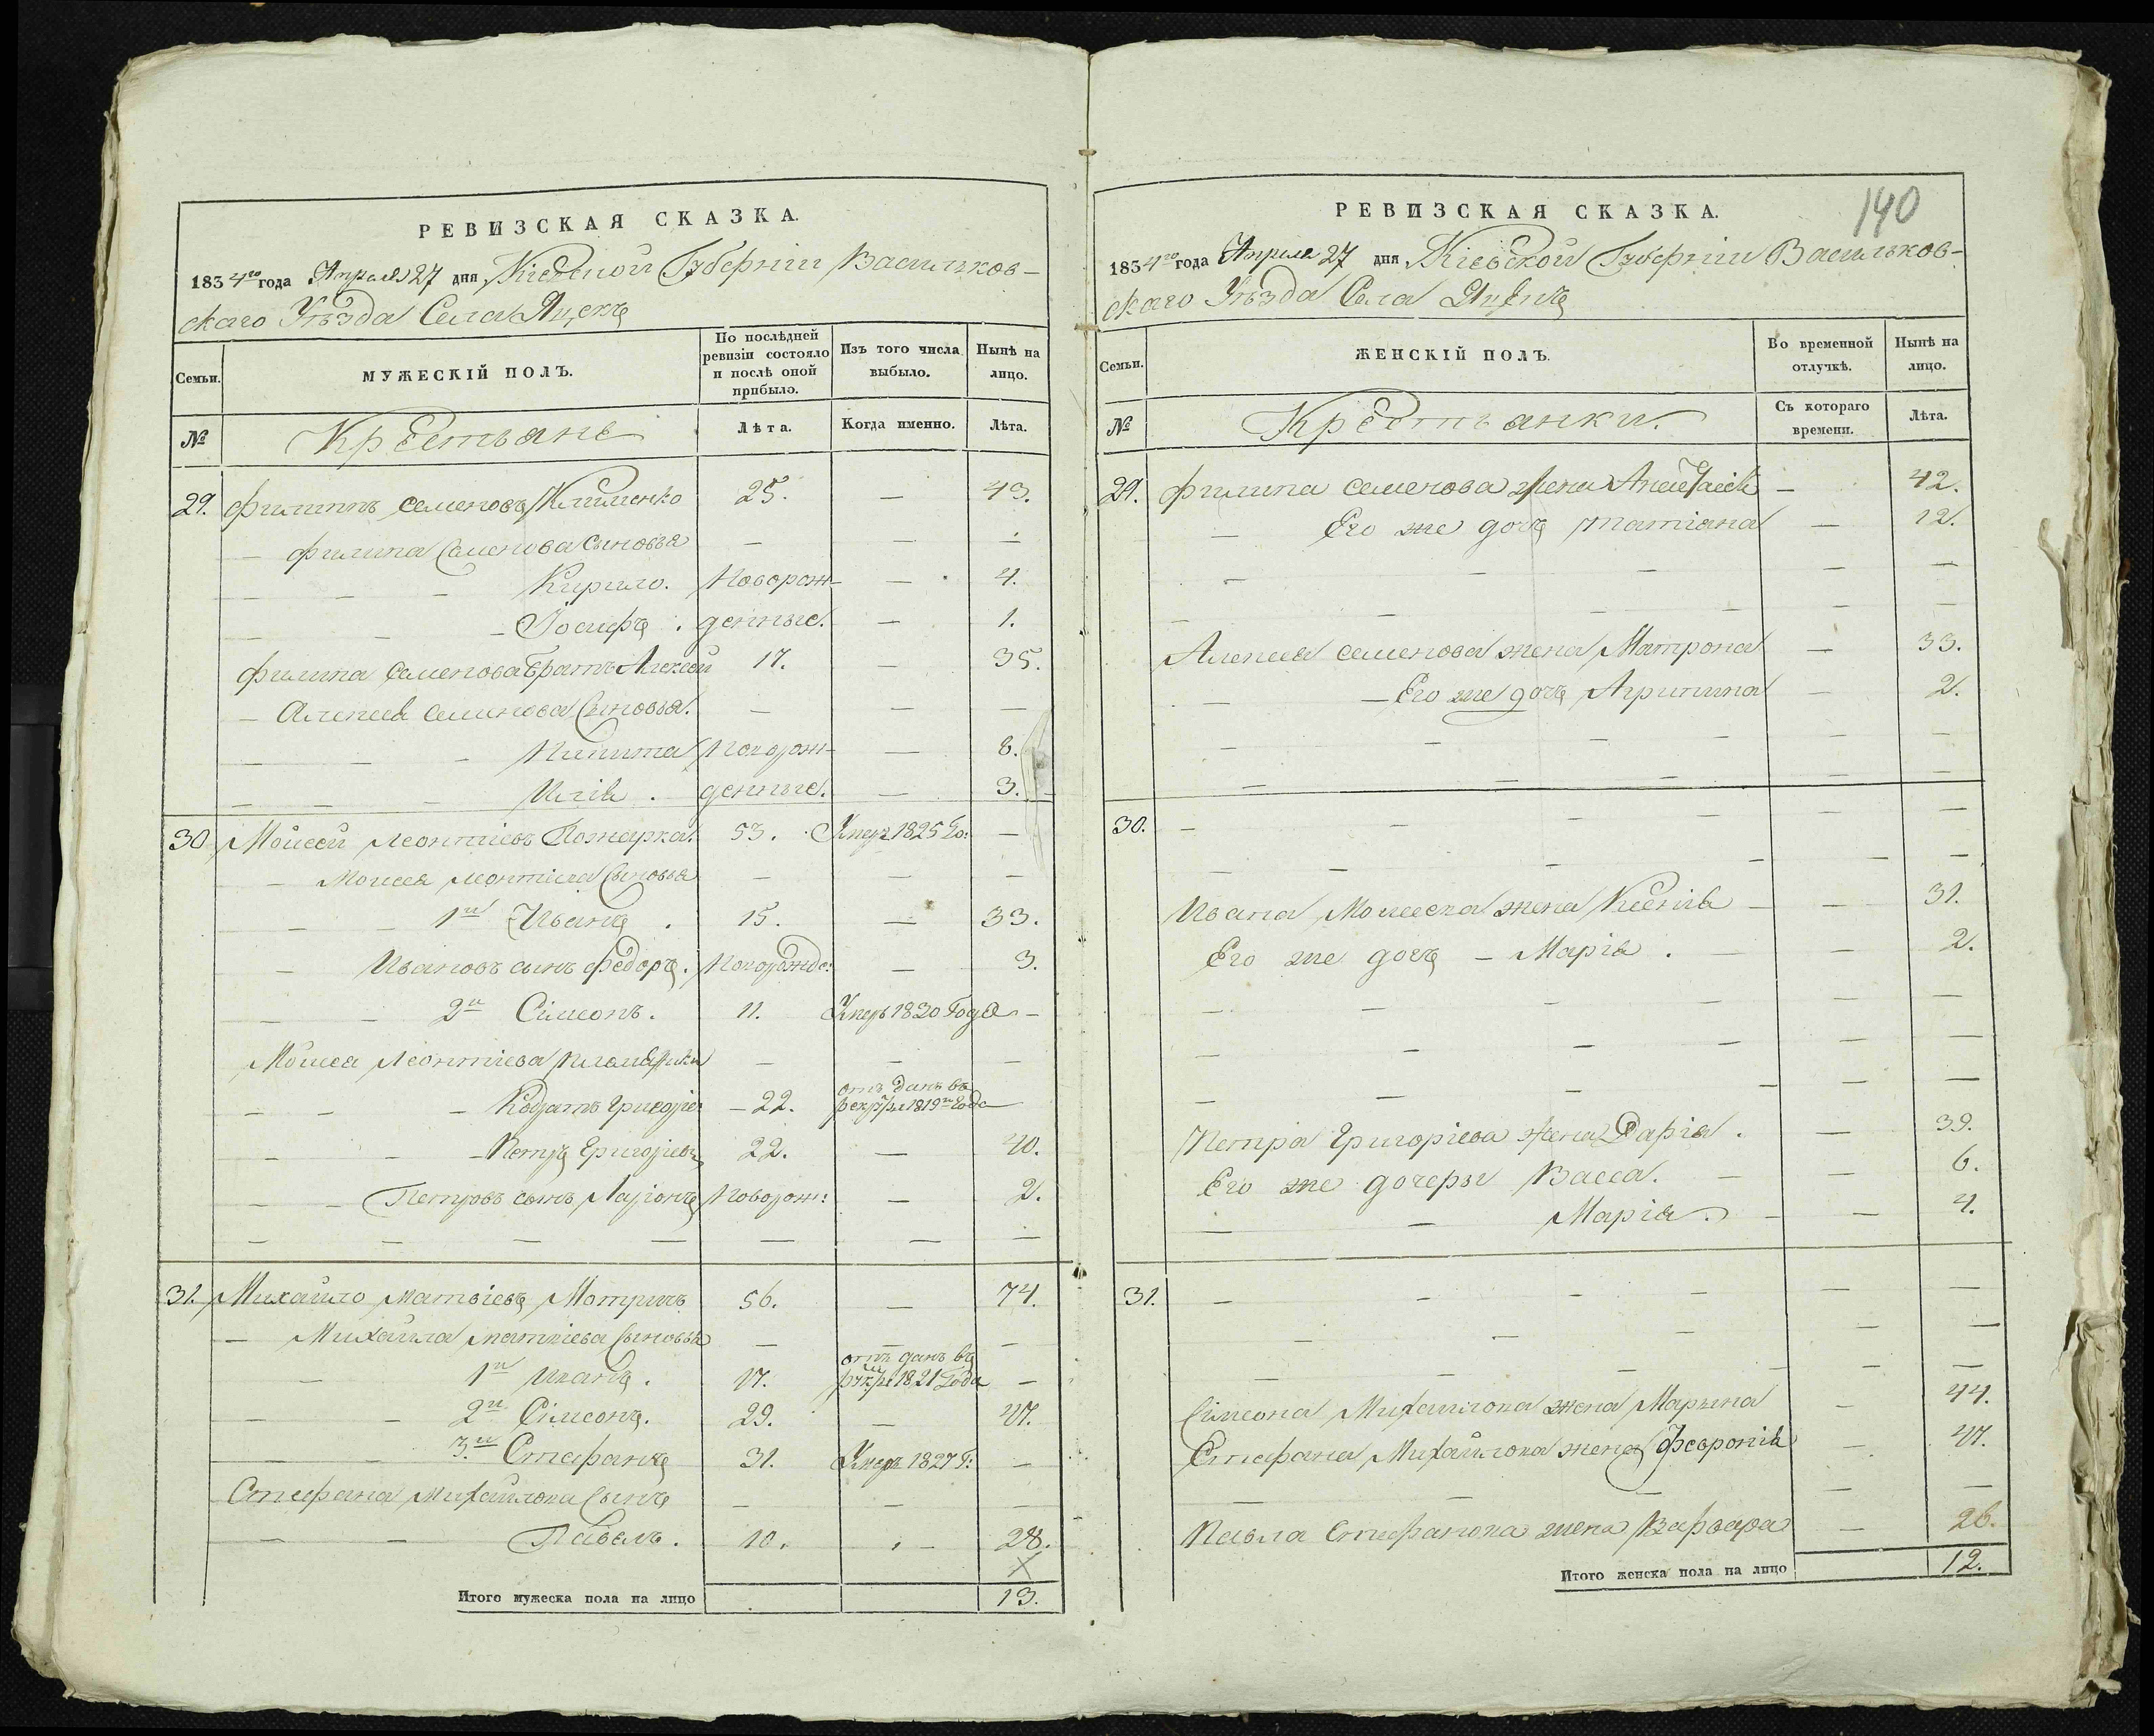 РЕВИЗСКАЯ СКАЗКА.
1834го года Апреля 27 дня Кіевской Губерніи Васильков-
скаго Уѣзда Села Яцекъ
Семьи.
МУЖЕСКІЙ ПОЛЪ.
По послѣдней ревизіи состояло и послѣ оной прибыло.
Изъ того числа выбыло.
Нынѣ на лицо.
№ Крестьяне Лѣта. Когда именно. Лѣта.
29. Филиппъ Семеновъ Клименко 25. — 43.
— Филипа Семенова Сыновья — — —
— — — Кирило. Новорож- — 4.
— — — Іосифъ. денные. — 1.
Филипа Семенова Братъ Алексей 17. — 35.
— Алексея Семенова Сыновья. — — —
— — — Никита Новорож- — 8.
— — — Илія. денные. — 3.
30. Мойсей Леонтіевъ 53. Умеръ 1825 Го: —
— Мойсея Леонтіева Сыновья — — —
— — — 1й Иванъ. 15. — 33.
— Ивановъ сынъ Федоръ. Новорожде: — 3.
— — 2й Сімеонъ. 11. Умеръ 1830 Года —
Мойсея Леонтіева Племянники — — —
— — — Кодратъ Григорїе: — 22. отъ данъ въ рекруты 1819го Года —
— — — Петръ Григоріевъ 22. — 40.
— — Петровъ сынъ Ларіонъ Новорож: — 2.
— — — — — — —
31. Михайло Матвіевъ 56. — 74.
— Михайла Матвіева Сыновья — — —
— 1й Иванъ. 17. отъ данъ въ 1821 Года —
— — 2й Сімеонъ. 29. — 47.
— — 3й Стефанъ 31. Умеръ 1827 Г: —
Стефана Михайлова Сынъ — — —
— — Павелъ. 10. — 28.
Итого мужеска пола на лицо 13.
140
РЕВИЗСКАЯ СКАЗКА.
1834го года Апреля 27 дня Кіевской Губерніи Васильков-
скаго Уѣзда Села Яцекъ
Семьи.
ЖЕНСКІЙ ПОЛЪ.
Во временной отлучкѣ.
Нынѣ на лицо.
№ Крестьянки. Съ котораго времени. Лѣта.
29. Филипа Семенова жена — 42.
— Его же дочъ Татіана — 12.
— — — — —
— — — — —
Алексея Семенова жена Матрона — 33.
— — Его же дочъ Агрипина — 2.
— — — — — —
— — — — —
30. — — — — — —
— — — — — —
Ивана Мойсеева жена Ксенія — — 31.
Его же дочъ — Марія. — — 2.
— — — —
— — — — — —
— — — — — —
Петра Григоріева жена Дарія. — 39.
Его же дочеры Васса. — — 6.
— — Марія. — — 4.
31. — — — — — —
— — — — —
— — — — —
Сімеона Михайлова жена Марына — 44.
Стефана Михайлова жена Февронія — 47.
— — — — —
Павла Стефанова жена Варвара — 26.
Итого женска пола на лицо 12.